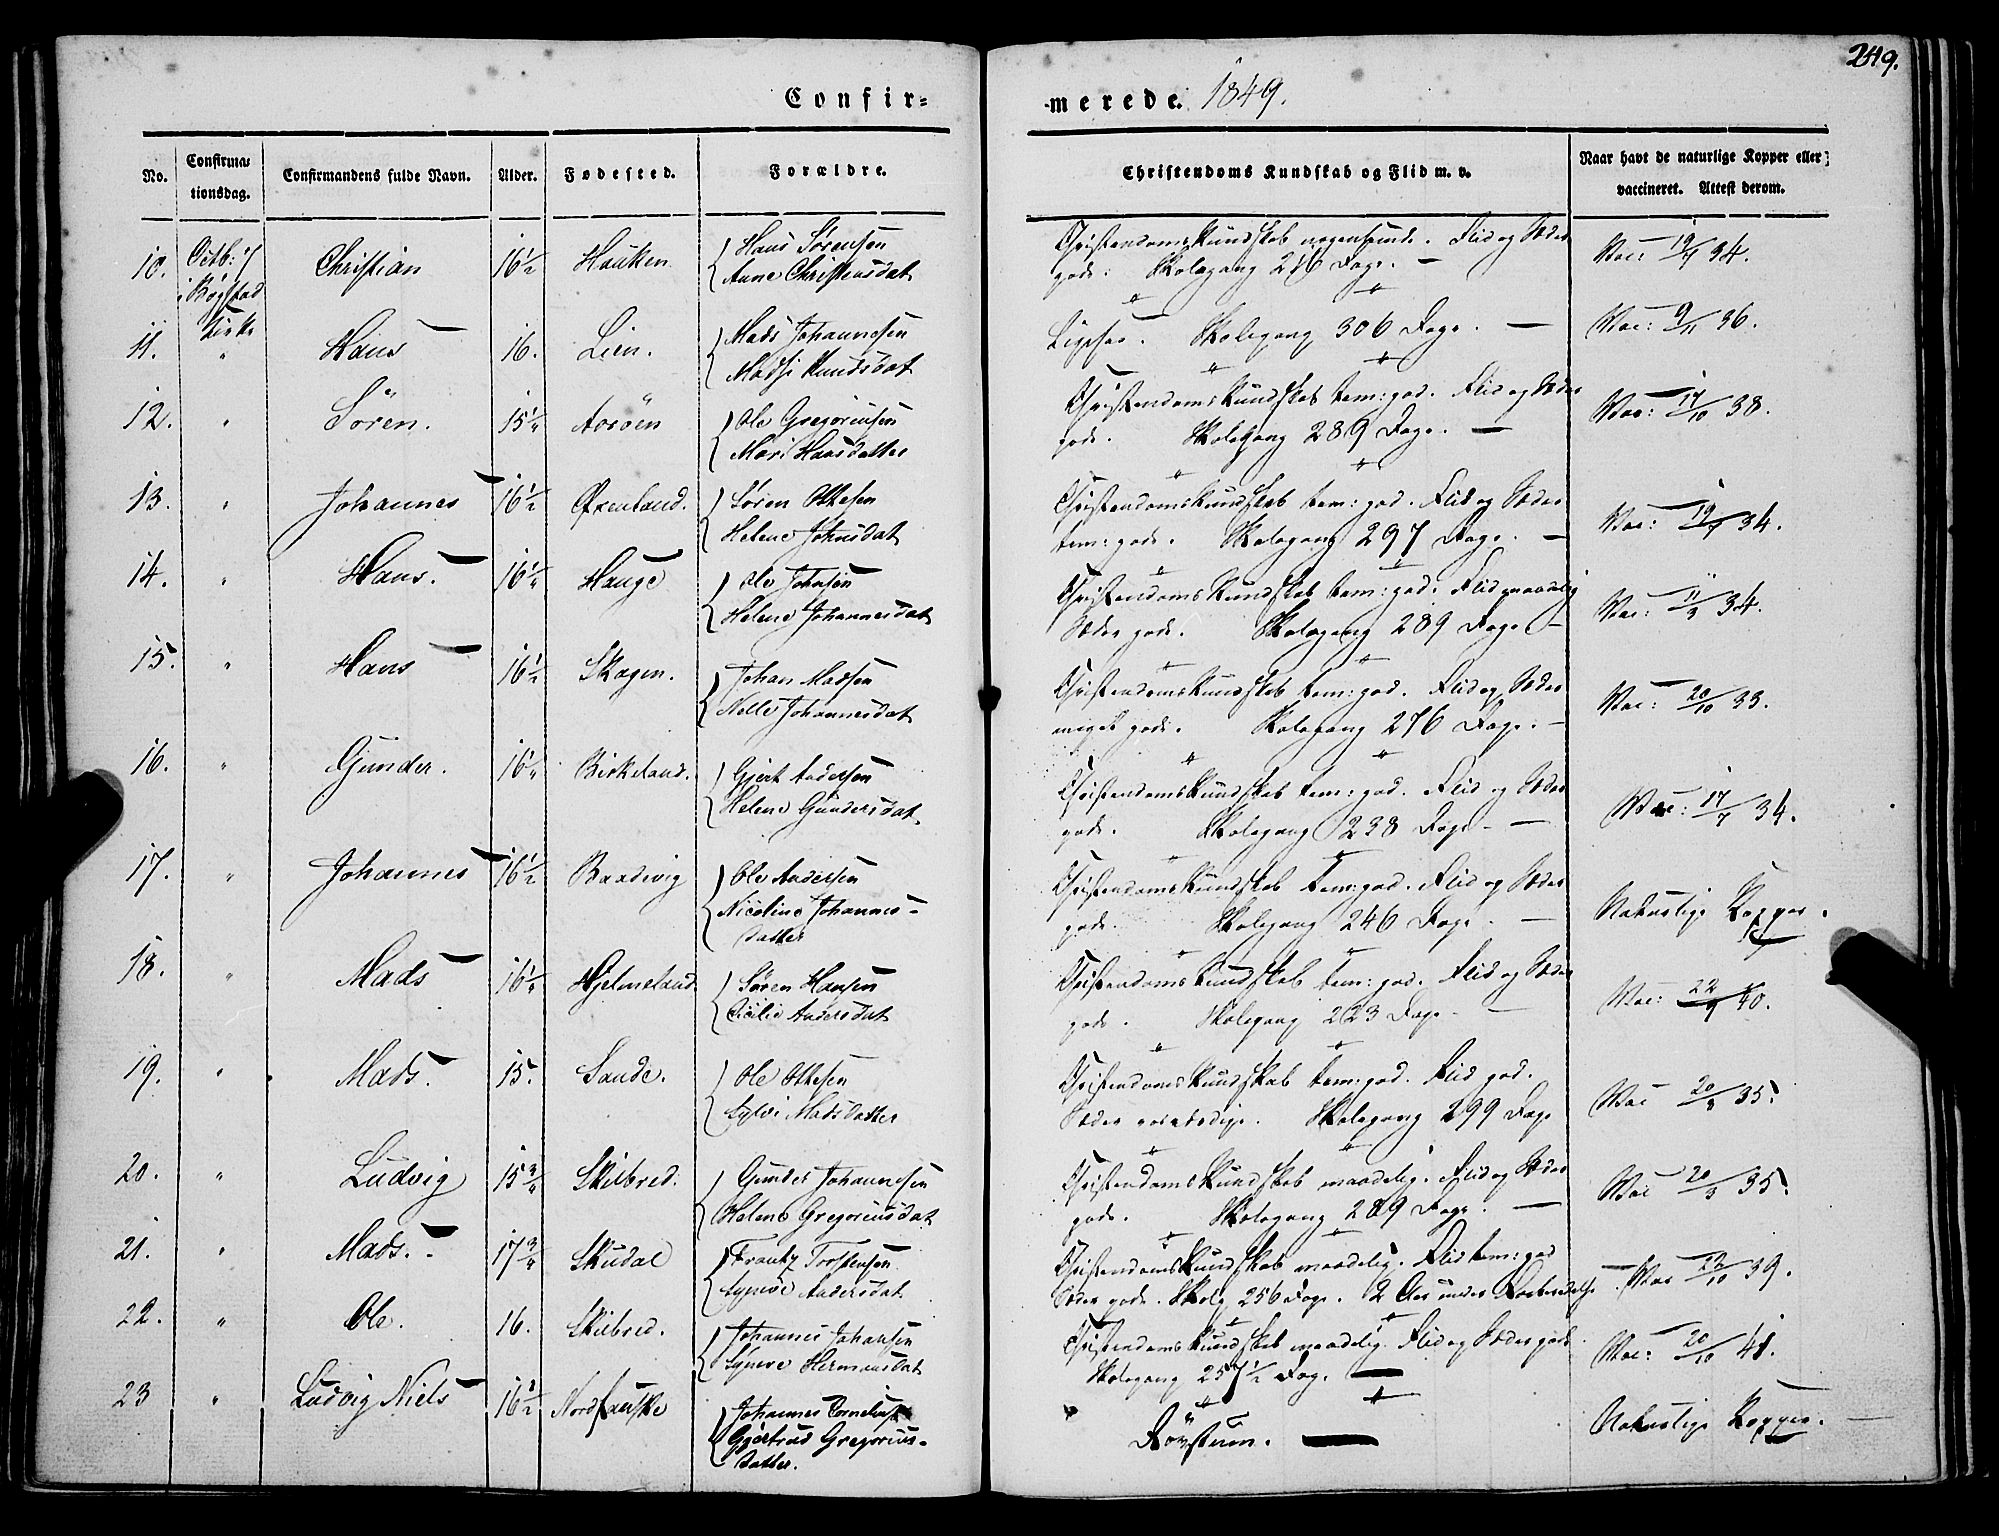 249.
Confir=
-merede. 1849.
No.
Confirma-
tionsdag.
Confirmandens fulde Navn.
Alder.
Fødested.
Forældre.
Christendoms Kundskab og Flid m. v.
Naar havt de naturlige Kopper eller
vaccineret. Attest derom.
10. Octb: 7 Christian 16½ Hauken Hans Sørensen
i Bogstad Anne Christensdat
Kirke
Christendoms Kundskab nogenlunde. Flid og Sæder
gode. Skolegang 216 Dage. —
Vac: 19/7 34.
11. " Hans 16. Lien. Mads Johannesen
Madsi Knudsdat
Ligesaa. Skolegang 306 Dage. —
Vac: 9/11 36.
12. " Sören. 15¼ Aaröen Ole Gregoriusen
Mari Hansdatter
Christendoms Kundskab tem: god. Flid og Sæder
gode. Skolegang 289 Dage. —
Vac: 17/10 38.
13. " Johannes 16½ Øxenland. Sören Ottesen
Helene Johnsdat
Christendoms Kundskab tem: god. Flid og Sæder
tem: gode. Skolegang 297 Dage. —
Vac: 19/7 34.
14. " Hans. 16¼ Hauge Ole Johnsen
Helene Johannesdat
Christendoms Kundskab tem: god. Flid maadelig
Sæder gode. Skolegang 289 Dage —
Vac: 11/3 34.
15. " Hans 16½ Skagen. Johan Madsen
Nelle Johannesdat
Christendoms Kundskab tem: god. Flid og Sæder
meget gode. Skolegang 276 Dage. —
Vac: 20/10 33.
16. " Gunder. 16¼ Birkeland. Gjert Andersen
Helene Gundersdat.
Christendoms Kundskab tem: god. Flid og Sæder
gode. Skolegang 238 Dage. —
Vac: 17/7 34.
17. " Johannes 16½ Baadvig Ole Andersen
Nicoline Johannes-
datter
Christendoms Kundskab tem: god. Flid og Sæder
gode. Skolegang 246 Dage. —
Naturlige Kopper.
18. " Mads 16¼ Hjelmeland Sören Hansen
Cicilie Andersdat
Christendoms Kundskab tem: god. Flid og Sæder
gode. Skolegang 223 Dage —
Vac: 22/9 40.
19. " Mads. 15. Sande. Ole Ottesen
Sylvi Madsdatter
Christendoms Kundskab tem: god. Flid god.
Sæder Skolegang 299 Dage
Vac 20/8 35.
20. " Ludvig 15¾ Skilbred. Gunder Johannesen
Helene Gregoriusdat
Christendoms Kundskab maadelig. Flid og Sæder
gode. Skolegang 289 Dage. —
Vac 20/8 35.
21. " Mads. 17¾ Skudal Frantz Torstensen
Synöve Andersdat.
Christendoms Kundskab maadelig. Flid tem: god
Sæder gode. Skolg 256 Dage. 2 Aar under Forberedelse.
Vac 23/10 39.
22. " Ole. 16. Skilbred. Johannes Johansen
Synöve Hermansdat
Christendoms Kundskab maadelig. Flid og Sæder gode.
Skolegang 257½ Dag. —
Vac: 20/10 41.
23 " Ludvig Niels 16½ Nordfauske Johannes Cornelius
Gjertrud Gregorius-
datter.
Døvstum. —
Naturlige Kopper. —